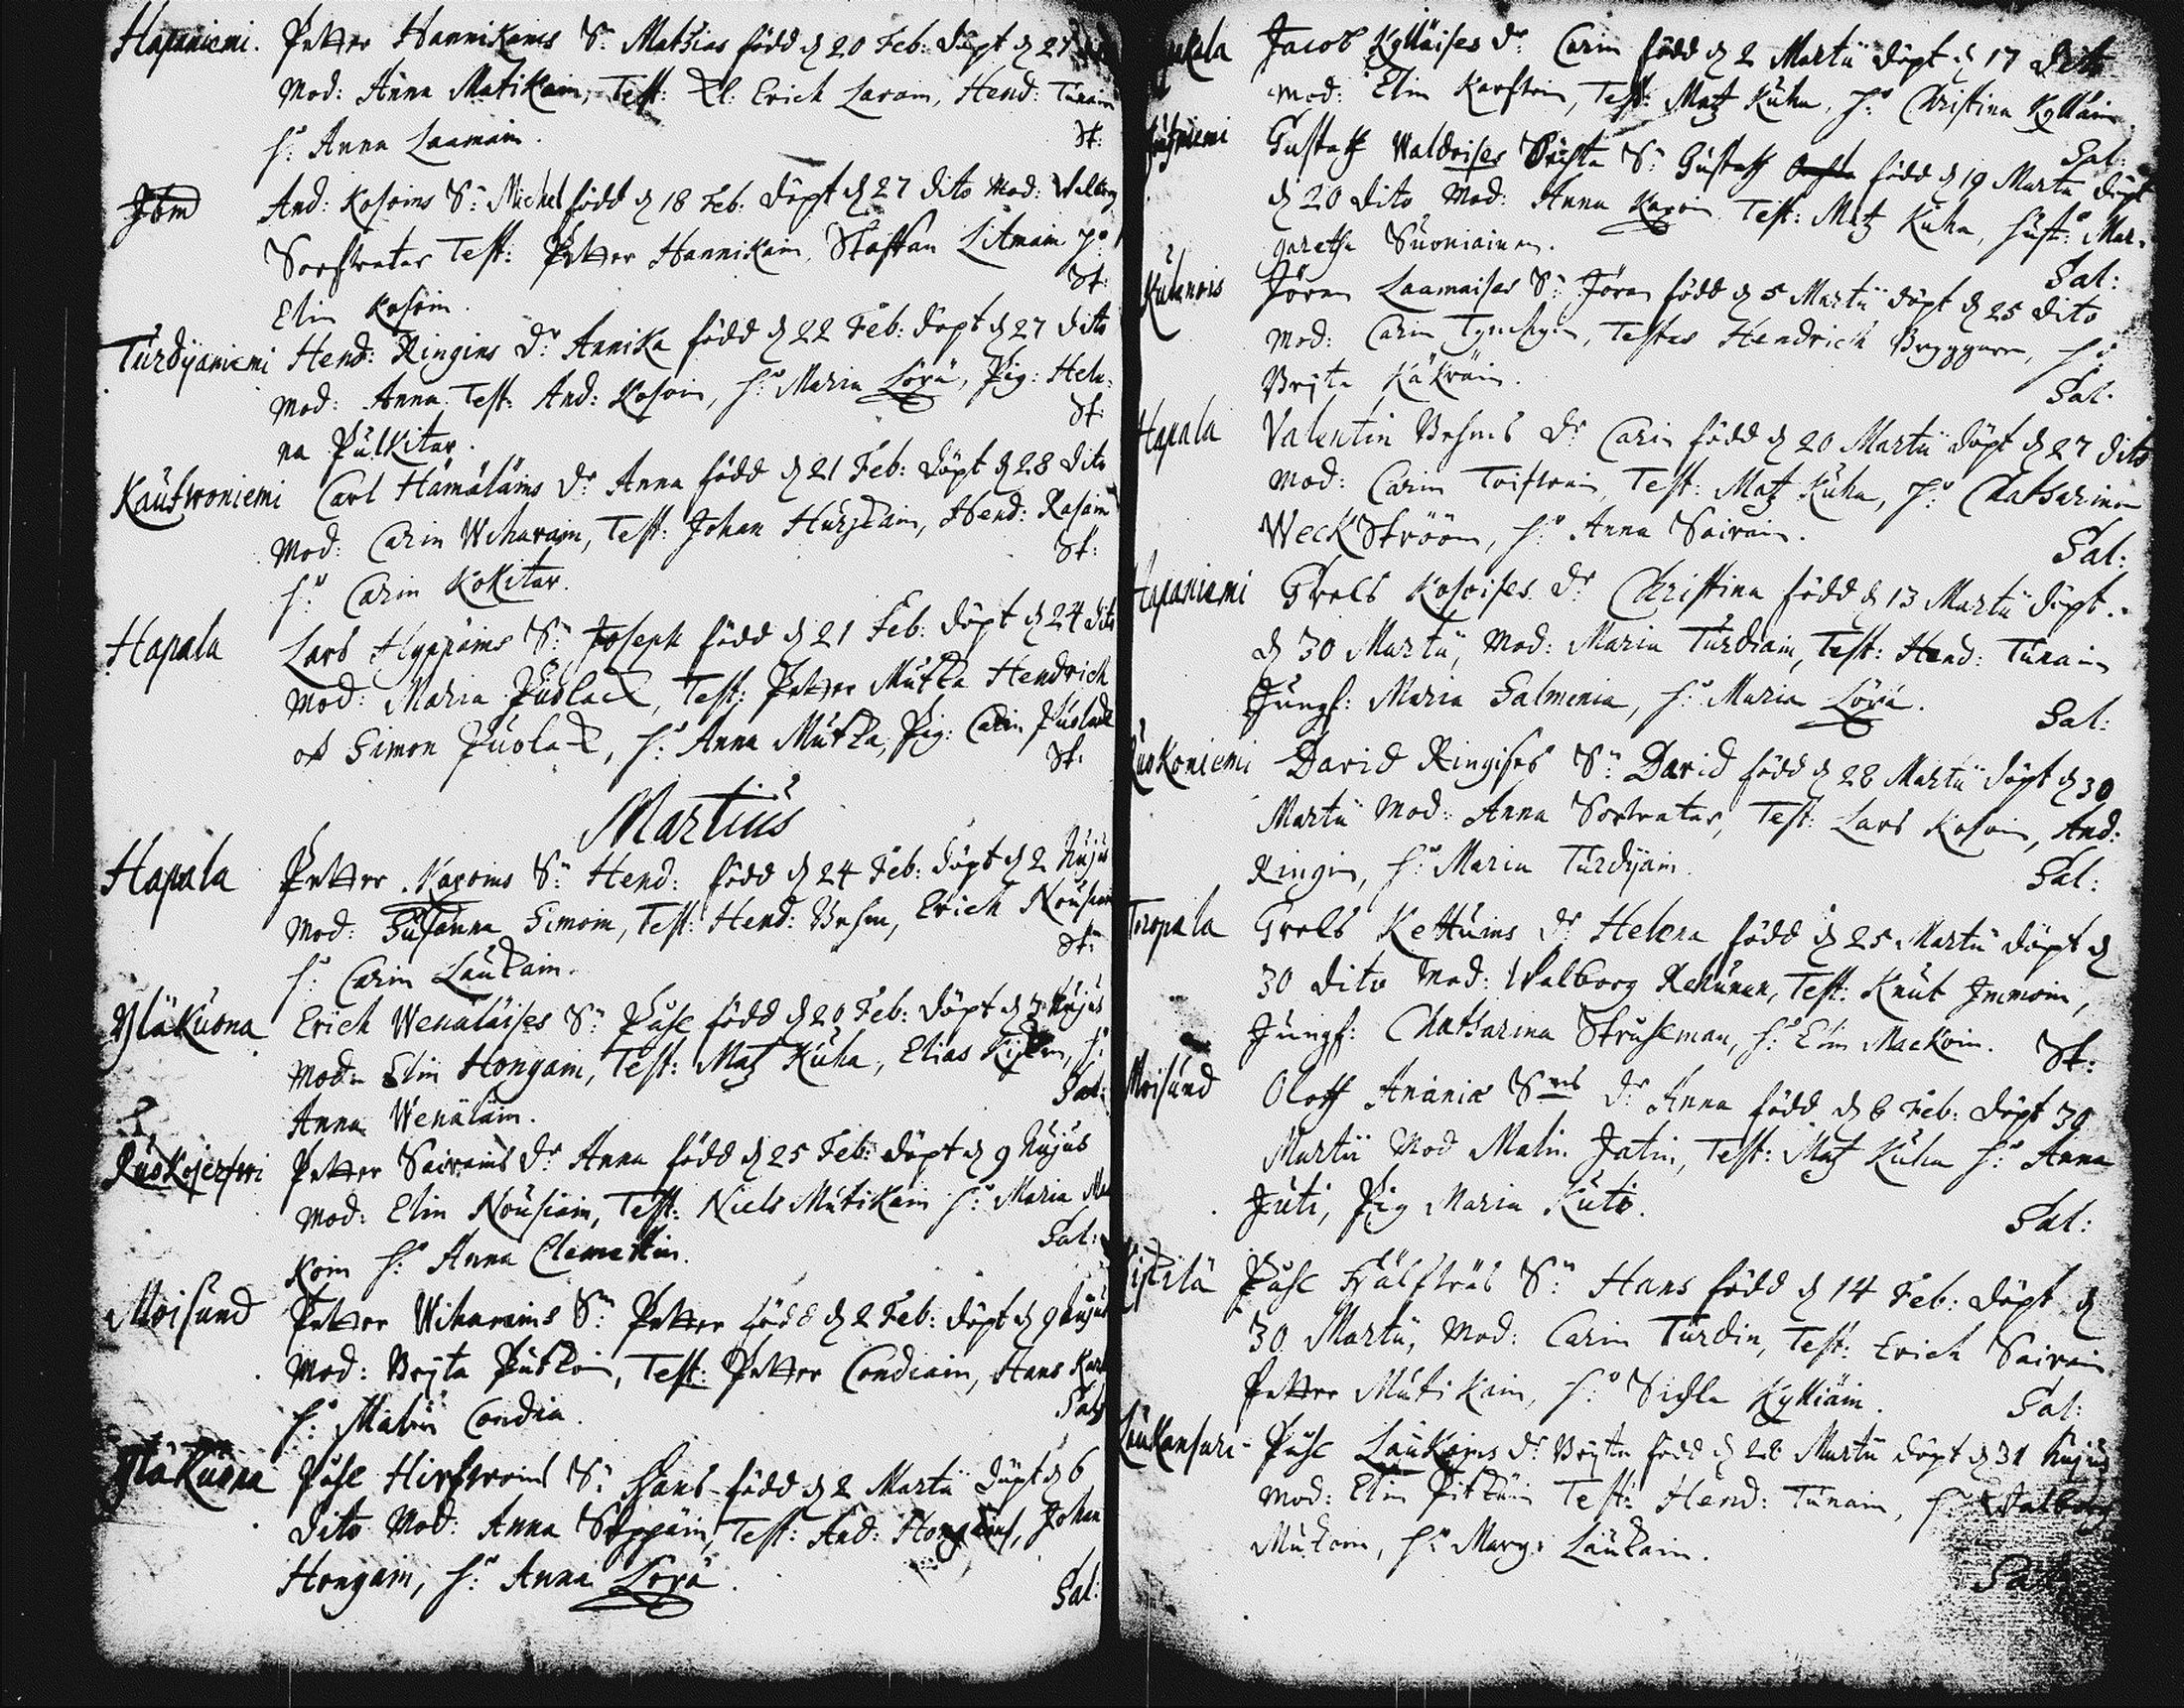 Hapaniemi. Petter Hannikains S: Mathias född d 20 Feb: döpt d 27
Mod: Anna Matikain, Test: Erich Laram, Hend: Tunain
h: Anna Laamain.
St:
Ibm And: Kosoins S: Michel född d 18 Feb: döpt d 27 dito Mod: Walborg
Test: Petter Hannikain, Staffan Litmain h:
Elin Kosoin.
St:
Turdÿaniemi Hend: Ringins Dr Annika född d 22 Feb: döpt d 27 dito
Mod: Anna Test: And: Kosoin, h: Maria Lörä, Pig: Hele:
na Pulkitar.
St:
Kautwoniemi Carl Hämäläins Dr Anna född d 21 Feb: döpt d 28 dito
Mod: Carin Wihavain, Test: Johan Hurskain, Hend: Kosoin
h: Carin Kokitar.
St:
Hapala Lars Hyppäins S: Joseph född d 21 Feb: döpt d 24 dito
Mod: Maria Puolack, Test: Petter Mutka Hendrich
och Simon Puolack, h: Anna Mutka, Pig: Carin Puolack
St:
Martius
Hapala Petter Kaxoins S: Hend: född d 24 Feb: döpt d 2 hujus
Mod: Susanna Simoin, Test: Hend: Vesm, Erich
h: Carin Laukain.
St:
Yläkuona Erich Wenäläises S: Påhl född d 20 Feb: döpt d 3 hujus
Mod: Elin Hongain, Test: Matz Kuha, Elias h:
Anna Wenäläin.
Sal:
Ruskojerfwi Petter Sairains Dr Anna född d 25 Feb: döpt d 9 hujus
Mod: Elin Nousiain, Test: Niels Mutikain h: Maria Ma
koin h: Anna Clemettin.
Sal:
Moisund Petter Wihavains S: Petter född d 2 Feb: döpt d 9 hujus
Mod: Brijta Putkoin, Test: Petter Condiain, Hans
h: Malin Condia.
Sal:
Yläkuona Påhl Hirfwoins S: Hans född d 2 Martii döpt d 6
dito Mod: Anna Seppäin, Test: And: Hongains, Johan
Hongain, h: Anna Lörä.
Sal:
Jacob Kylliäises Dr Carin född d 2 Martii döpt d 17 dito
Mod: Elin Karftoin, Test: Matz Kuha, h: Christina Kylliäin
Sal:
Gustaff Waldoises S: Gustaff född d 19 Martii döpt
d 20 dito Mod: Anna Kaxoin Test: Matz Kuha, Hust: Mar:
garetha Suoniainen.
Sal:
Kulanois Jöran Laamaises S: Jöran född d 5 Martii döpt d 25 dito
Mod: Carin Testes Hendrich Bryggare, h:
Brijta Käkräin.
Sal.
Hapala Valentin Vesms Dr Carin född d 20 Martii döpt d 27 dito
Mod: Carin Toiftoin, Test: Matz Kuha, h: Chatharina
Weckström, h: Anna Sairain.
Sal:
Hapaniemi Grels Kosoises Dr Christina född d 13 Martii döpt
d 30 Martii, Mod: Maria Turdiain, Test: Hend: Tunain
Jungf: Maria Salmenia, h: Maria Lörä.
Sal:
Ruskoniemi David Ringises S: David född d 28 Martii döpt d 30
Martii Mod: Anna Test: Lars Kosoin, And:
Ringin, h: Maria Turdÿain.
Sal:
Toropala Grels Kettuins Dr Helena född d 25 Martii döpt d
30 dito Mod: Walborg Rekunen, Test: Knut Immoin,
Jungf: Chatharina Struseman, h: Elin Mackoin.
St:
Moisund Oloff Ananiæ Dr Anna född d 6 Feb: döpt 30
Martii Mod Malin Jatin, Test: Matz Kuha h: Anna
Juti, Pig Maria Kuti.
Sal:
Påhl S: Hans född d 14 Feb: döpt d
30 Martii, Mod: Carin Turdin, Test: Erich Sairain
Petter Mutikain, h: Kylliäin.
Sal:
Laukansari Påhl Laukains Dr Brijta född d 28 Martii döpt d 31 hujus
Mod: Elin Pitkäin Test: Hend: Tunain, h: Walborg
h: Marg: Laukain.
Sal: